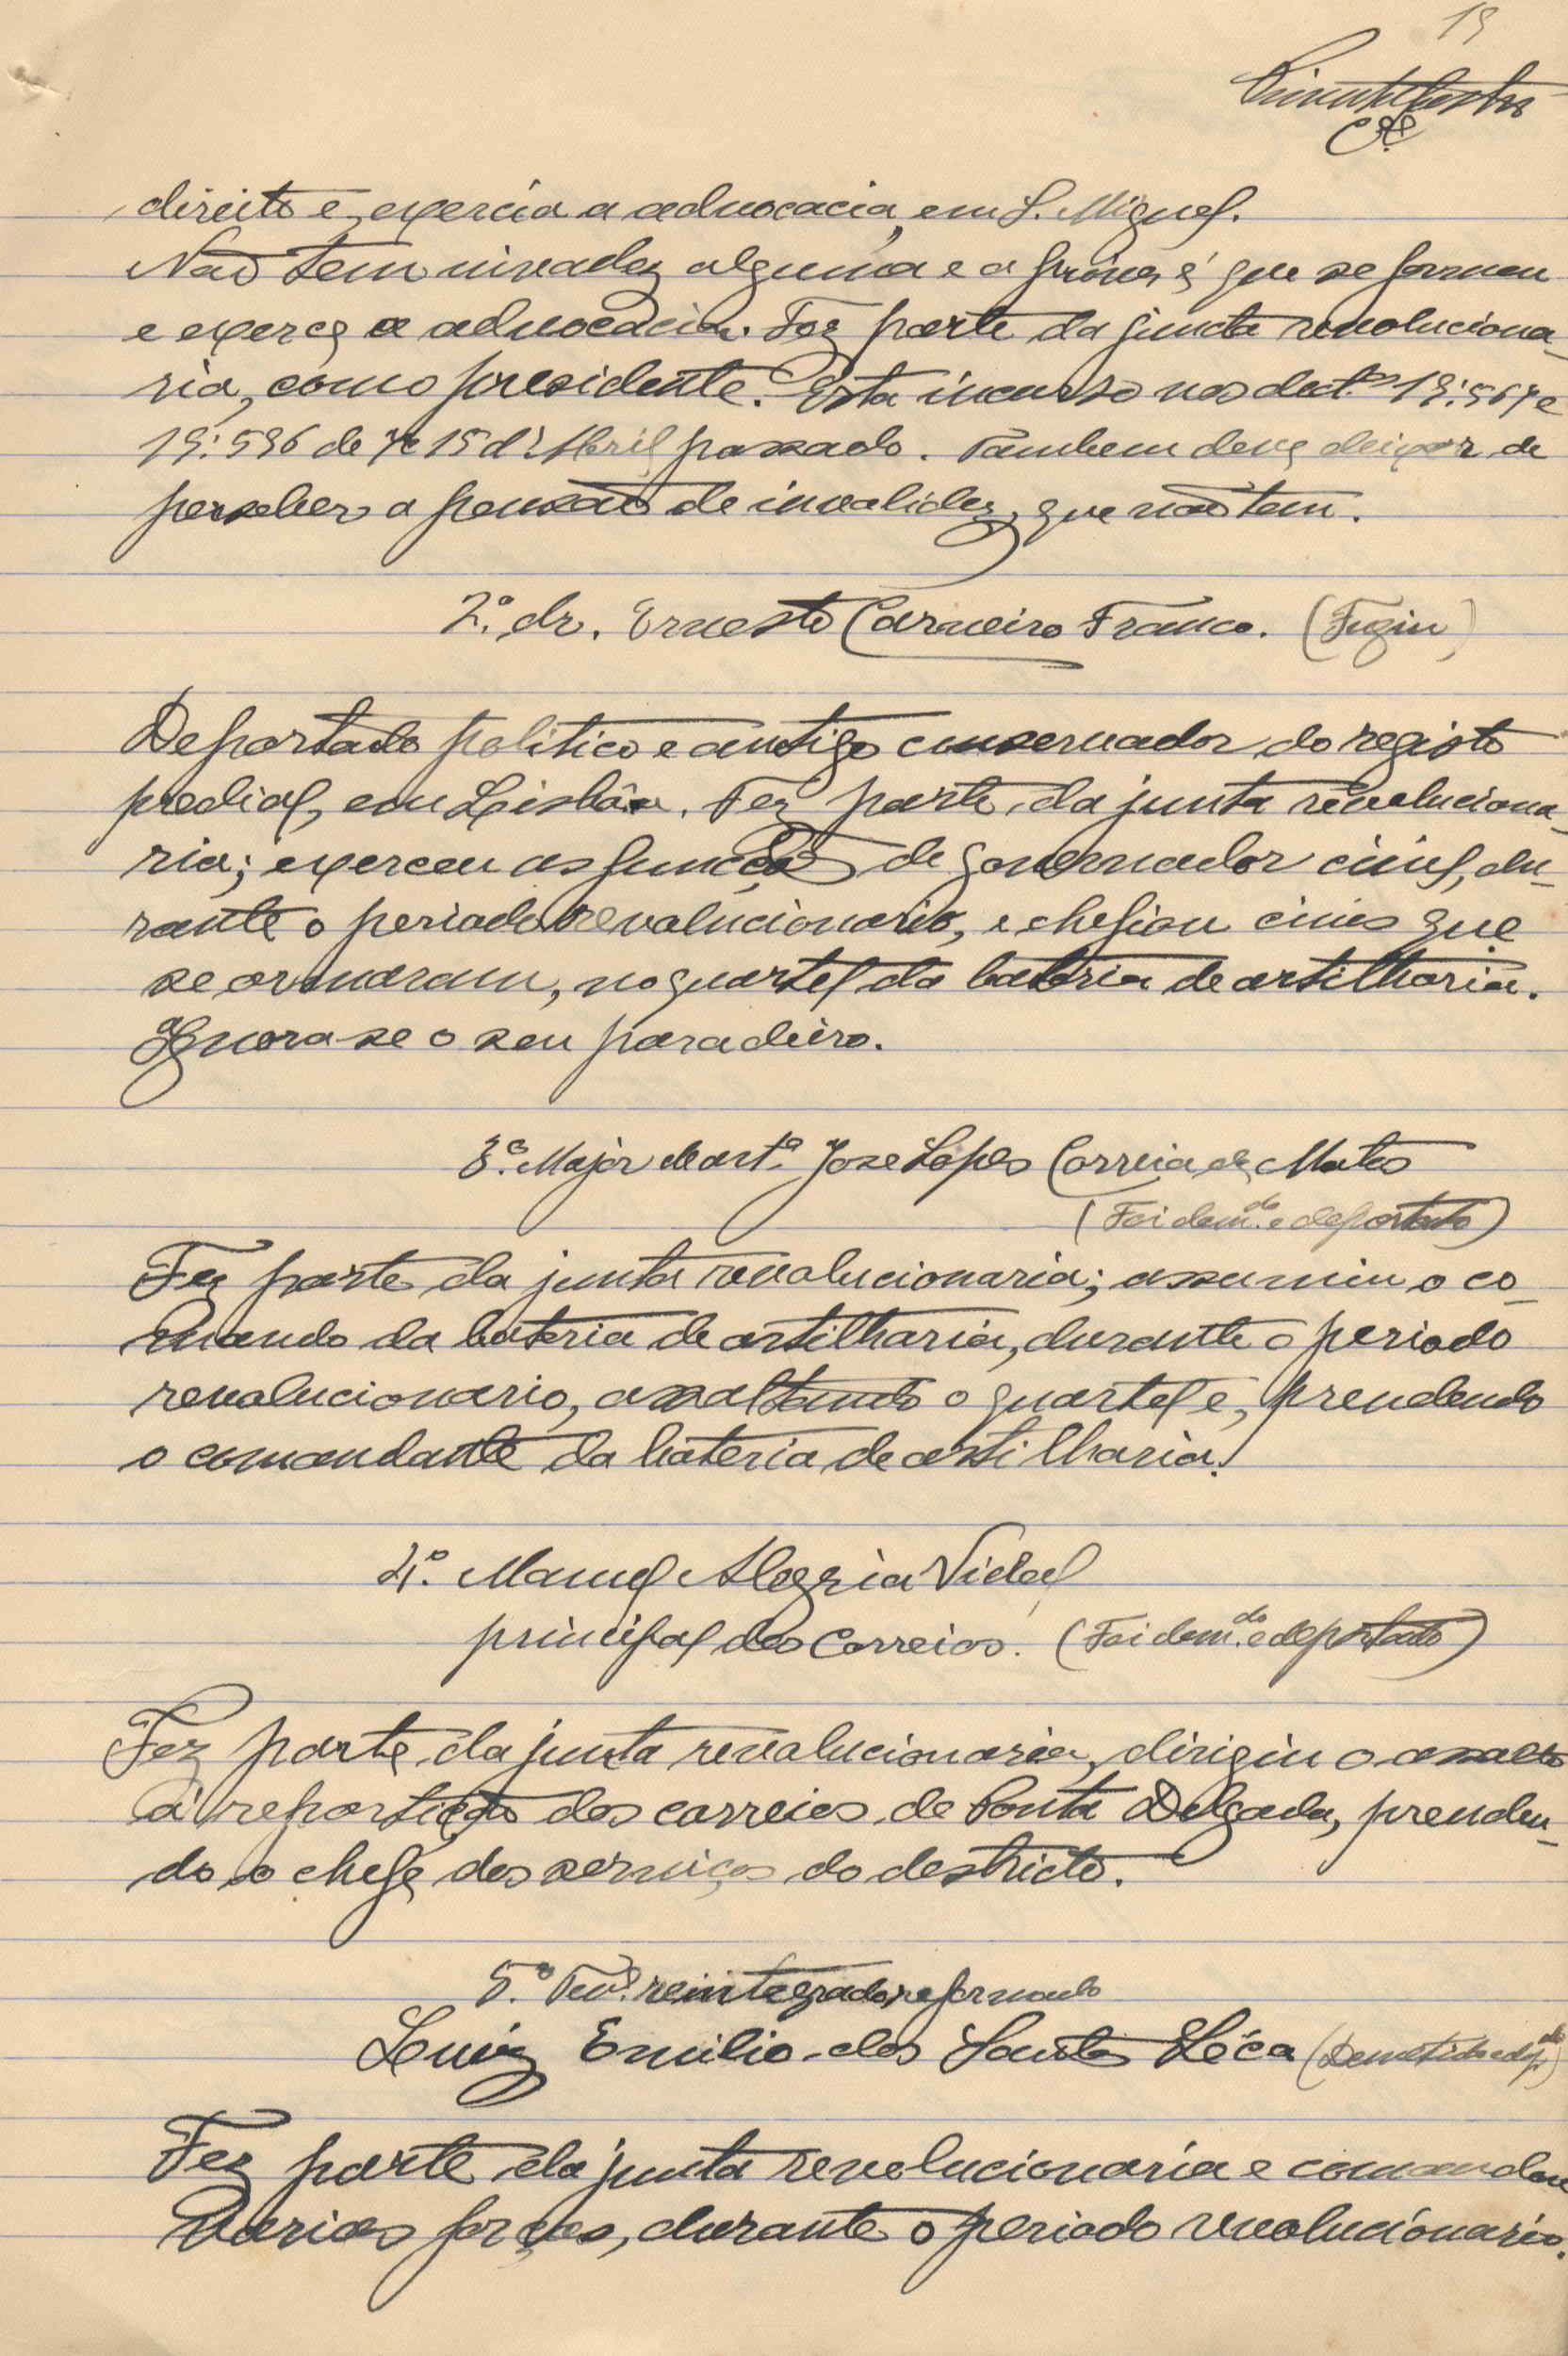 19
direito e, exercia a advocacia, em S. Miguel.
Não tem invalidez alguma e a prova é que se formou
e exerce a advocacia. Fez parte da juncta revoluciona-
ria, como presidente. Está incurso nos dect.os 19:567 e
19:596 de 7 e 15 d'Abril passado. Tambem deve deixar de
perceber a pensão de invalidez, que não tem.
2.º dr. Ernesto Carneiro Franco. (Fugiu)
Deportado politico e antigo conservador do registo
predial, em Lisbôa. Fez parte da junta revoluciona-
ria; exerceu as funções de governador civil, du-
rante o periodo revolucionario, e chefiou civis que
se armaram, no quartel da bateria de artilharia.
Ignora-se o seu paradeiro.
3.º Major de art.ª José Lopes Correia de Matos
(Foi dem.do e deportado)
Fez parte da junta revolucionaria; assumiu o co-
mando da bateria de artilharia, durante o periodo
revolucionario, assaltando o quartel e, prendendo
o comandante da bateria de artilharia.
4.º Manuel Alegria Vidal
principal dos Correios. (Foi dem.do e deportado)
Fez parte da junta revolucionaria, dirigiu o assalto
á repartição dos correios de Ponta Delgada, prenden-
do o chefe dos serviços do destricto.
5.º Ten.e reintegrado, reformado
Luiz Emilio dos Santos Léca (Demetido e dep.do)
Fez parte da junta revolucionária e comandou
varias forças, durante o periodo revolucionário.